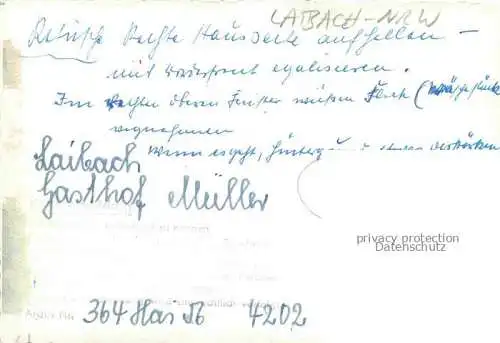 LAIBACH-NRW
Retusche Rechte Hausseite aufhellen –
mit Vorderfront egalisieren.
Im rechten oberen Fenster weißen Fleck (Wäschestücke
wegnehmen
Wenn es geht, Hintergrund etwas verstärken
Laibach
Gasthof Müller
privacy protection
Datenschutz
Archiv Nr.
364 Has 56 4202